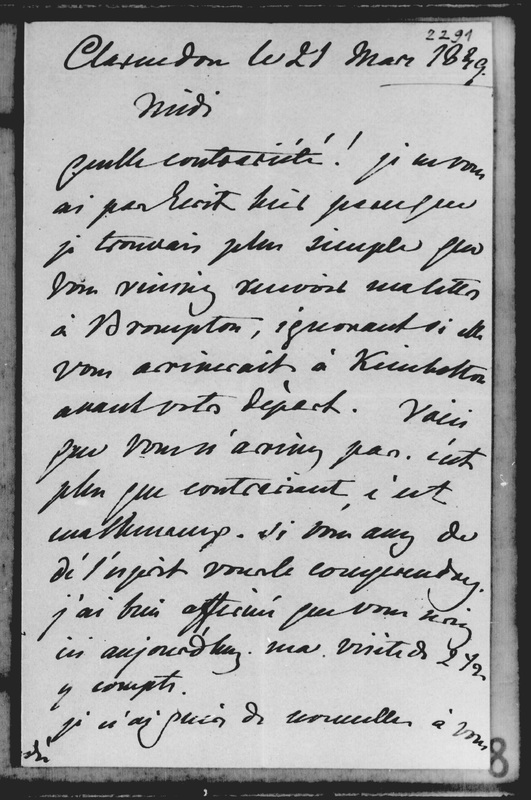 2291
Clarendon le 21 Mars 1849.
Midi
quelle contrariété ! je ne vous
ai pas écrit hier parceque
je trouvais plus simple que
vous vinssiez recevoir ma lettre
à Brompton, ignorant si elle
vous arriverait à Kimbolton
avant votre départ. Voici
que vous n'arrivez pas. c'est
plus que contrariant c'est
malheureux. si vous avez de
de l'esprit vous le comprendrez.
j'ai bien affirmé que vous seriez
ici aujourd'hui. ma visite de 2 1/2
y compte.
je n'ai guères de nouvelles à vous
8